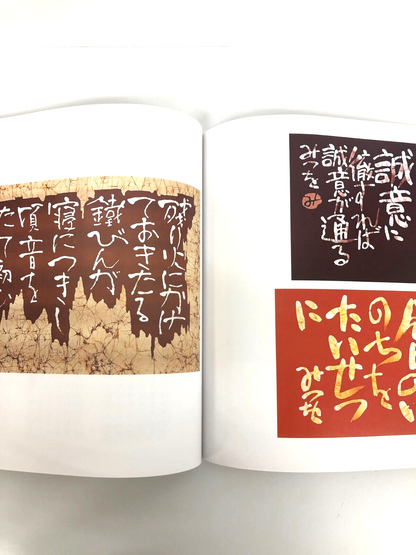 残り火にかけ
ておきたる
鐵びんが
寝につきし
頃音を
たて
誠意に
徹すれば
誠意が通る
みつを
み
のい
のちを
たいせつ
に
みつを